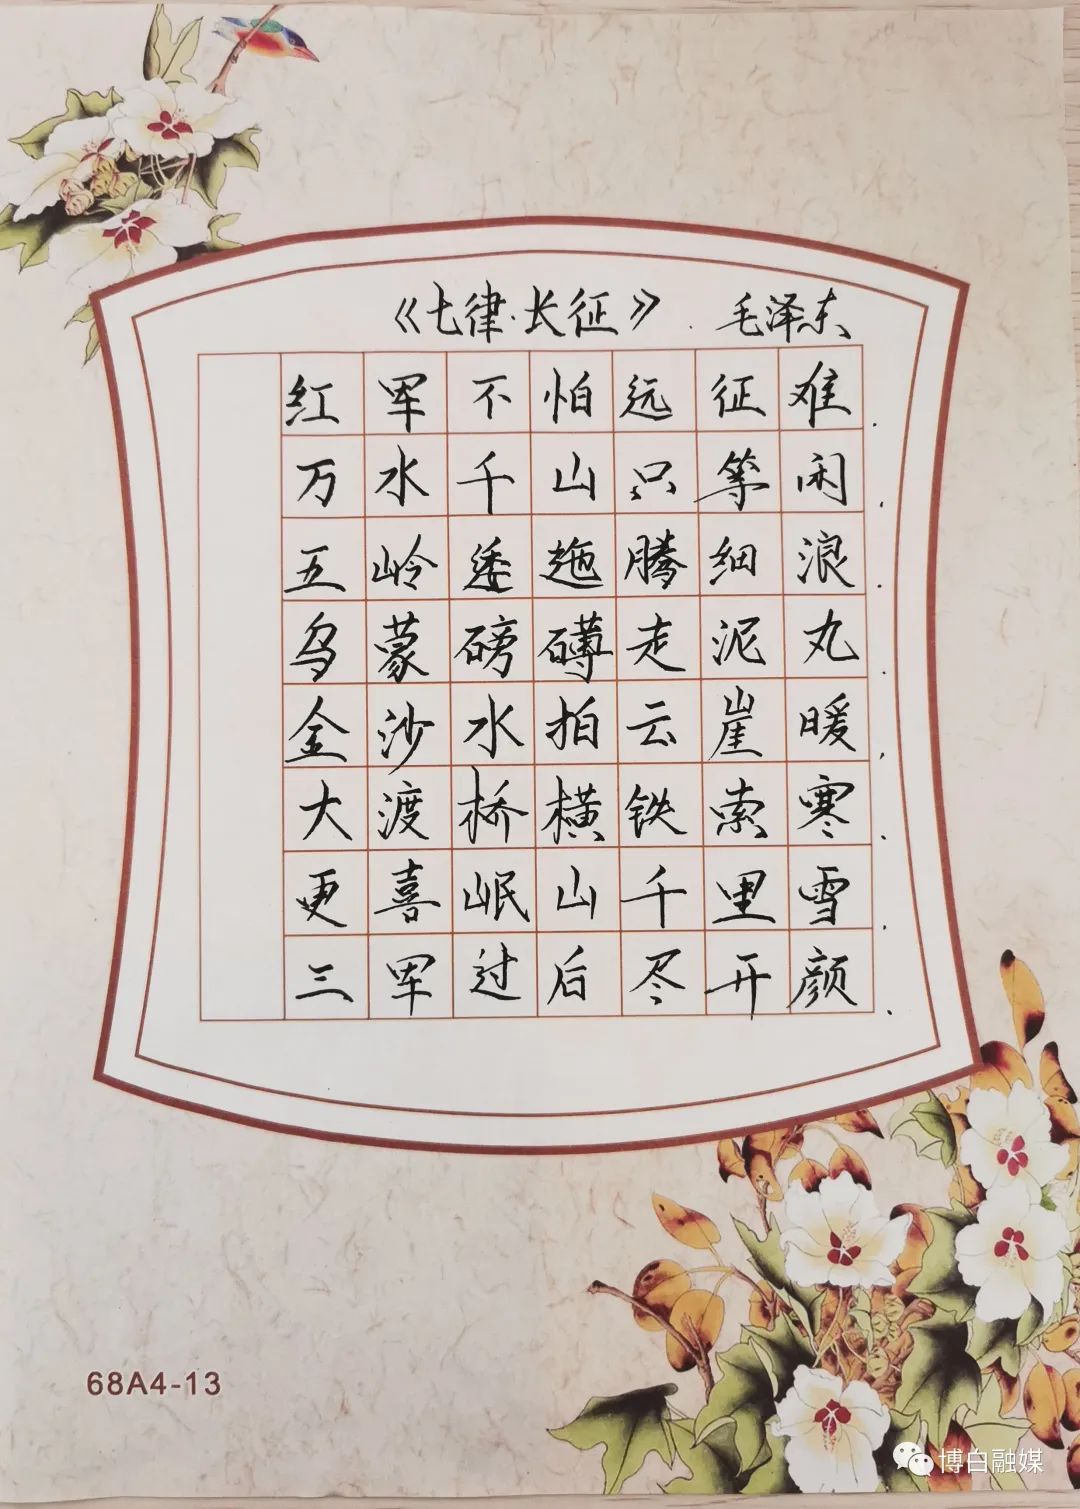 《七律·长征》 毛泽东
红军不怕远征难.
万水千山只等闲.
五岭逶迤腾细浪.
乌蒙磅礴走泥丸.
金沙水拍云崖暖.
大渡桥横铁索寒.
更喜岷山千里雪
三军过后尽开颜.
68A4-13
博白融媒